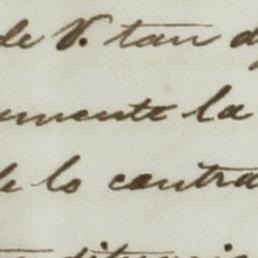 de V. tan
amente la
de lo contra